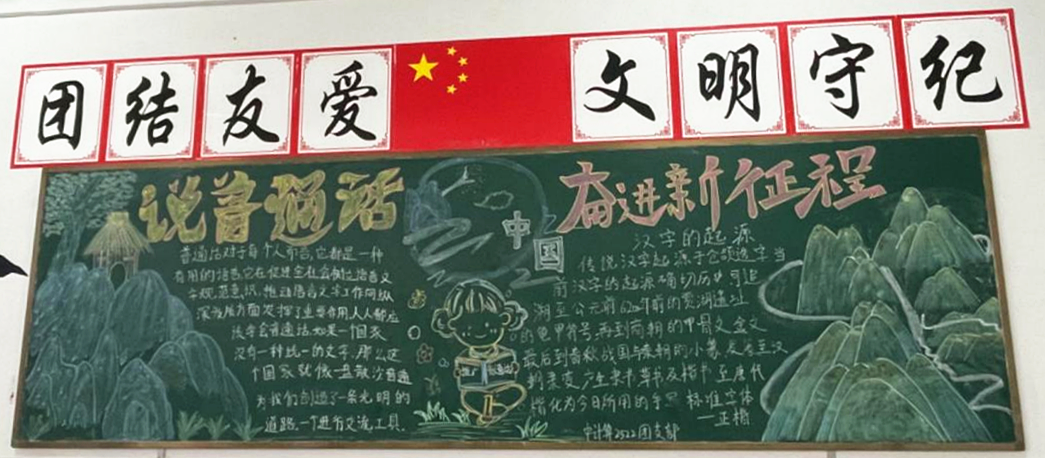 团结友爱 文明守纪
说普通话 奋进新征程
中国
普通话对于每个人而言,它都是一种
有用的语言,它在促进全社会树立语言文
字规范意识,推动语言文字工作向纵
深发展方面发挥了重要作用人人都应
该学会普通话如果一个国家
没有一种统一的文字,那么这
个国家就像一盘散沙普通
为我们创造了一条光明的
道路,一个进行交流工具.
汉字的起源
传说汉字起源于仓颉造字当
前汉字的起源确切历史可追
溯至公元前 年前的贾湖遗址
的龟甲符号,再到商朝的甲骨文金文
最后到春秋战国与秦朝的小篆,发展至汉
朝隶变,产生隶书草书及楷书至唐代
楷化为今日所用的手 标准字体
—正楷
中计算2522团支部